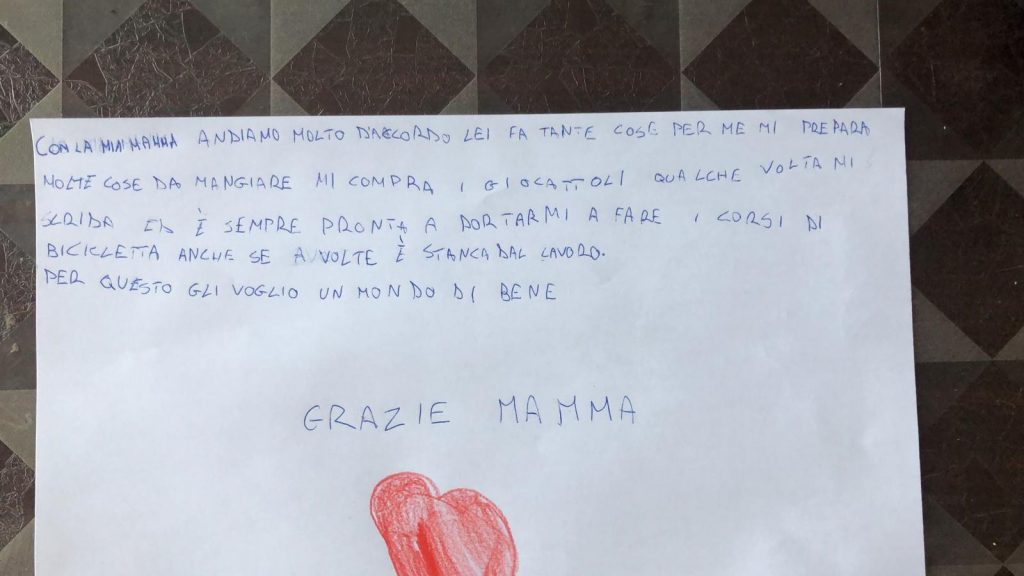 CON LA MIA MAMMA ANDIAMO MOLTO D'ACCORDO LEI FA TANTE COSE PER ME MI PREPARA
MOLTE COSE DA MANGIARE MI COMPRA I GIOCATTOLI QUALCHE VOLTA MI
SCRIDA È SEMPRE PRONTA A PORTARMI A FARE I CORSI DI
BICICLETTA ANCHE SE A VOLTE È STANCA DAL LAVORO.
PER QUESTO GLI VOGLIO UN MONDO DI BENE
GRAZIE MAMMA